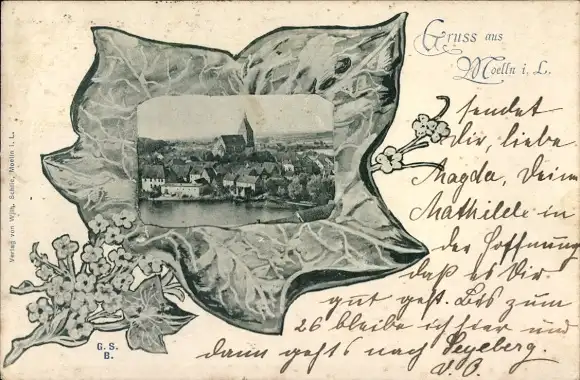 Gruss aus
Moelln i. L.
sendet
dir, liebe
Magda, Deine
Mathilde in
der Hoffnung
daß es Dir
gut geht. Bis zum
26 bleibe ich hier und
dann geht's nach Segeberg.
Verlag von Wilh. Schütz, Moelln i. L.
G. S.
B.